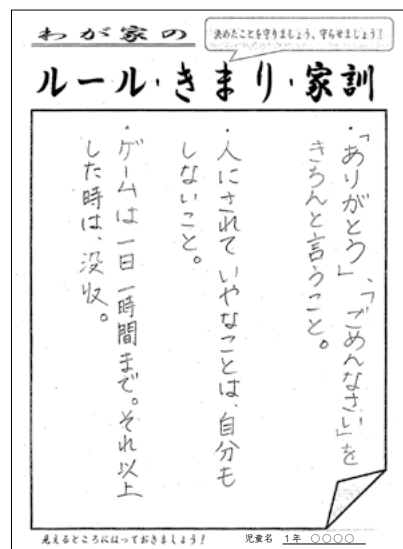 わが家の
決めたことを守りましょう、守らせましょう!
ルール・きまり・家訓
・「ありがとう」、「ごめんなさい」を
きちんと言うこと。
・人にされていやなことは、自分も
しないこと。
・ゲームは一日一時間まで。それ以上
した時は、没収。
見えるところにはっておきましょう!
児童名 1年 ○○○○